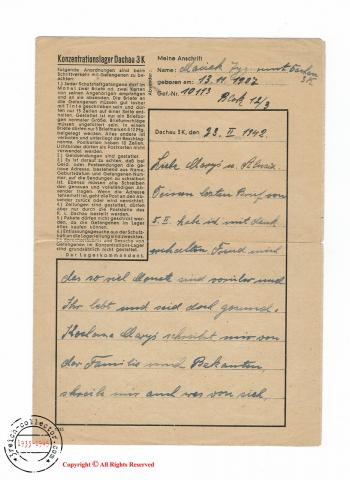 Konzentrationslager Dachau 3 K
Folgende Anordnungen sind beim
Schriftverkehr mit Gefangenen zu be-
achten:
1.) Jeder Schutzhaftgefangene darf im
Monat zwei Briefe od. zwei Karten
von seinen Angehörigen empfangen
und an sie absenden. Die Briefe an
die Gefangenen müssen gut lesbar
mit Tinte geschrieben sein und dür-
fen nur 15 Zeilen auf einer Seite ent-
halten. Gestattet ist nur ein Briefbo-
gen normaler Größe. Briefumschläge
müssen ungefüttert sein. In einem
Briefe dürfen nur 5 Briefmarken à 12 Pfg.
beigelegt werden. Alles andere ist
verboten und unterliegt der Beschlag-
nahme. Postkarten haben 10 Zeilen.
Lichtbilder dürfen als Postkarten nicht
verwendet werden.
2.) Geldsendungen sind gestattet.
3.) Es ist darauf zu achten, daß bei
Geld- oder Postsendungen die ge-
naue Adresse, bestehend aus Name,
Geburtsdatum und Gefangenen-Num-
mer, auf die Sendungen zu schreiben
ist.
4.) Zeitungen sind gestattet, dürfen
aber nur durch die Poststelle des
K. L. Dachau bestellt werden.
5.) Pakete dürfen nicht geschickt wer-
den, da die Gefangenen im Lager
alles kaufen können.
6.) Entlassungsgesuche aus der Schutz-
haft an die Lagerleitung sind zwecklos.
7.) Sprecherlaubnis und Besuche von
Gefangenen im Konzentrations-Lager
sind grundsätzlich nicht gestattet.
Der Lagerkommandant.
Absender:
Meine Anschrift
Name: Maciek Zygmunt Dachau
3K
geboren am: 13.11.1907
Gef.-Nr. 10113
Block 12/3
Dachau 3 K, den 23. II. 1942.
Liebe Marys u.
Deinen letzten Brief von
5. II. habe ich mit dank
erhalten Freud mich
das so viel Monate sind vorüber und
Ihr lebt und seid doch gesund.
Kochana Marys schreibt mir von
der Familie und Bekanten,
schreibe mir auch was von sich,
3reich-collector.com
1933-1945
Copyright © All Rights Reserved